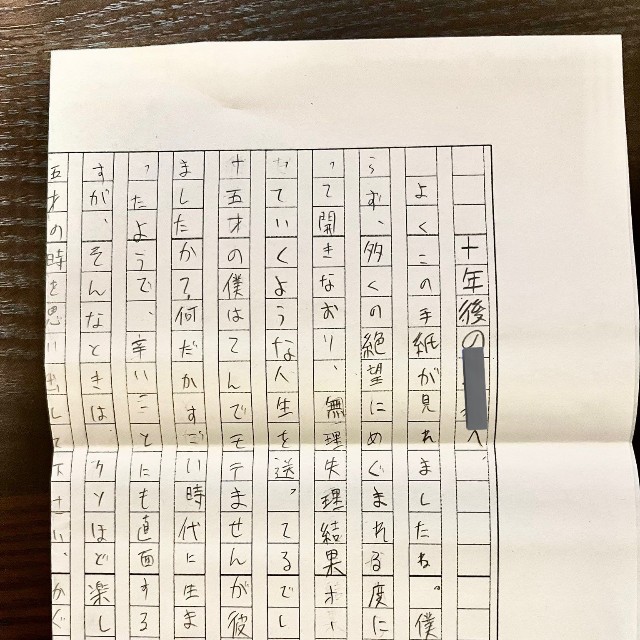 十年後の へ、
よくこの手紙が見れましたね。僕
らず、多くの絶望にめぐまれる度に
って開きなおり、無理矢理結果オー
せていくような人生を送ってるでし
十五才の僕はてんでモテませんが彼
ましたか?何だかすごい時代に生ま
ったようで、辛いことにも直面する
すが、そんなときは、クソほど楽し
五才の時を思い出して下さい、かぐ